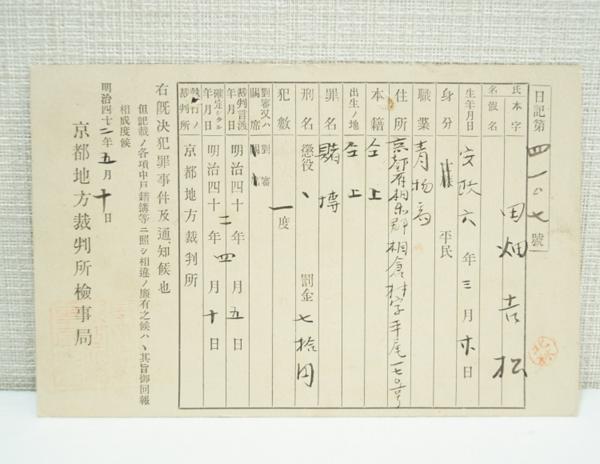 日記第四一〇七號
氏名 本字 田畑吉松
假名
生年月日 安政六年三月廿日
身分 平民
職業 青物商
住所 京都府相楽郡相倉村字平尾一七〇号
本籍 仝上
出生ノ地 仝上
罪名 賭博
刑名 懲役、罰金七拾円
犯數 一度
對審又ハ闕席 對審
裁判言渡年月日 明治四十二年四月五日
確定シタル年月日 明治四十二年四月十日
裁判所 京都地方裁判所
右既決犯罪事件及通知候也
但記載ノ各項中戸籍簿等ニ照シ相違ノ廉有之候ハヽ其旨御回報
相成度候
明治四十二年五月十日
京都地方裁判所檢事局